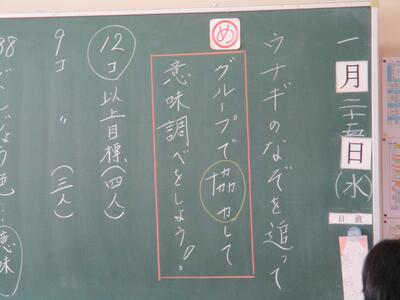 一月二十五日(水)
日直
ウナギのなぞを追って
め
グループで協力して
意味調べをしよう!
12コ以上目標(四人)
9コ 〃 (三人)
意味